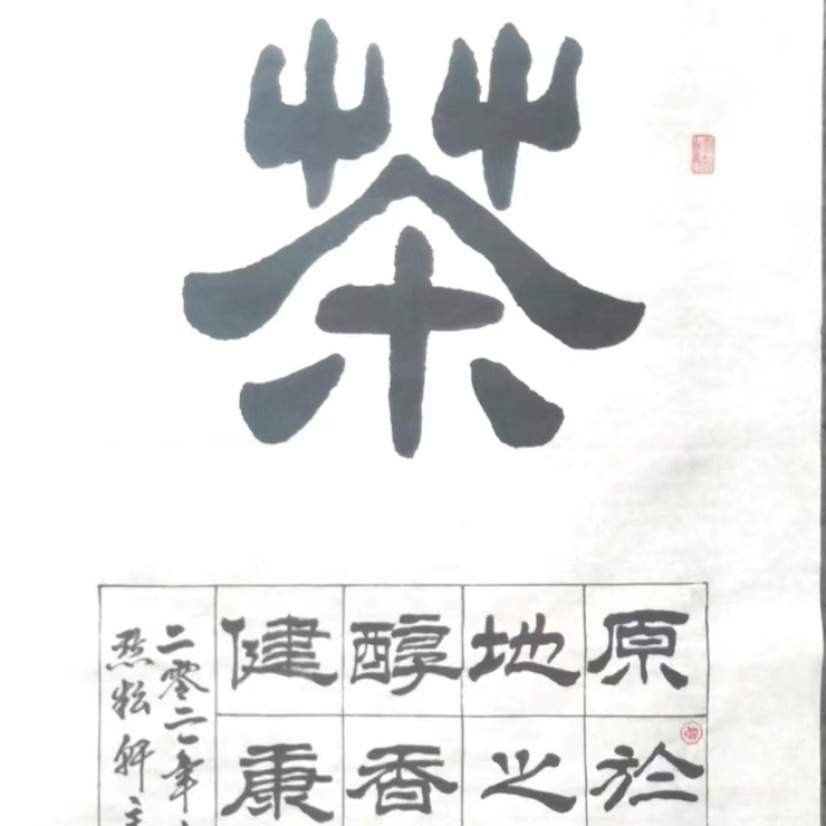 茶
原於
地之
醇香
健康
二零二一年
轩主